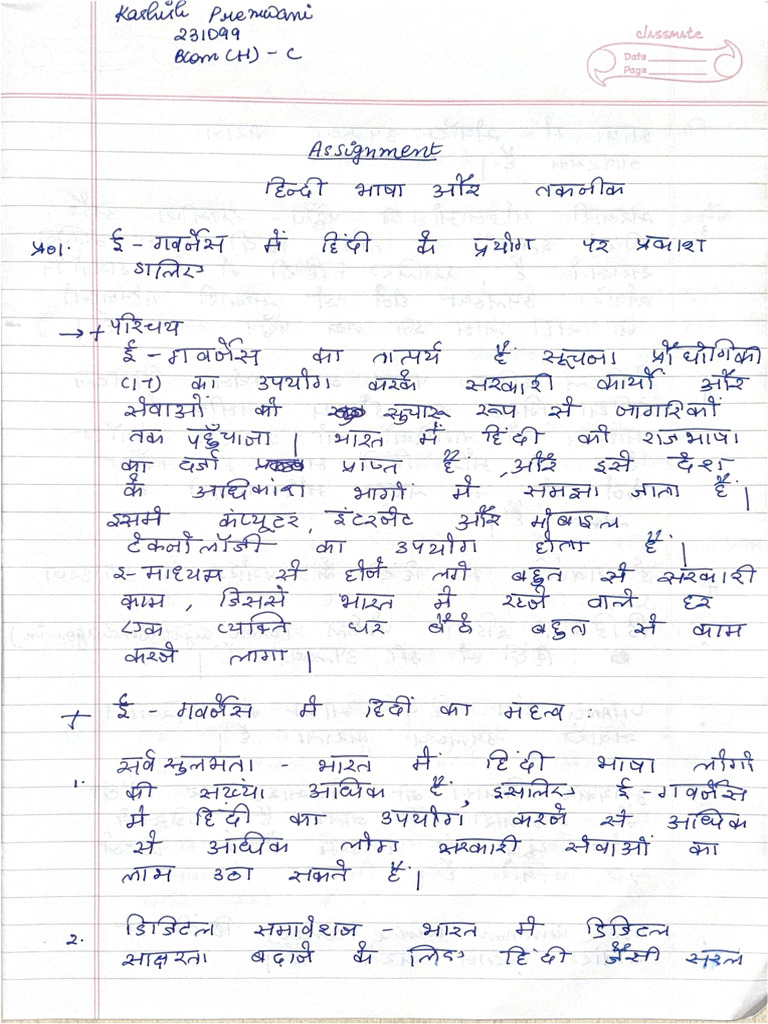 Kashish Premwani
231099
Bcom (H) - C
classmate
Date
Page
Assignment
हिन्दी भाषा और तकनीक
प्र01. ई-गवर्नेंस में हिंदी के प्रयोग पर प्रकाश
डालिए
→ + परिचय
ई-गवर्जेंस का तात्पर्य है सूचना प्रौधोगिकी
(IT) का उपयोग करके सरकारी कार्यों और
सेवाओं को सुचारू रूप से नागरिकों
तक पहुँचाना | भारत में हिंदी को राजभाषा
का दर्जा प्राप्त है, और इसे देश
के अधिकांश भागों में समझा जाता है|
इसमे कंप्यूटर, इंटरनेट और मोबाइल
टेकनोलॉजी का उपयोग होता है|
ई-माध्यम से होने लगे बहुत से सरकारी
काम, जिससे भारत में रहने वाले हर
एक व्यक्ति घर बैठे बहुत से काम
करने लागा|
+ ई-गवर्नेंस में हिंदी का महत्व :
1. सर्व सुलभता - भारत में हिंदी भाषा लोगो
की संख्या अधिक है, इसलिए ई-गवर्नेंस
में हिंदी का उपयोग करने से अधिक
से अधिक लोग सरकारी सेवाओं का
लाभ उठा सकते हैं|
2. डिजिटल समावेशन - भारत मे डिजिटल
साक्षरता बढ़ाने के लिए हिंदी जैसी सरल